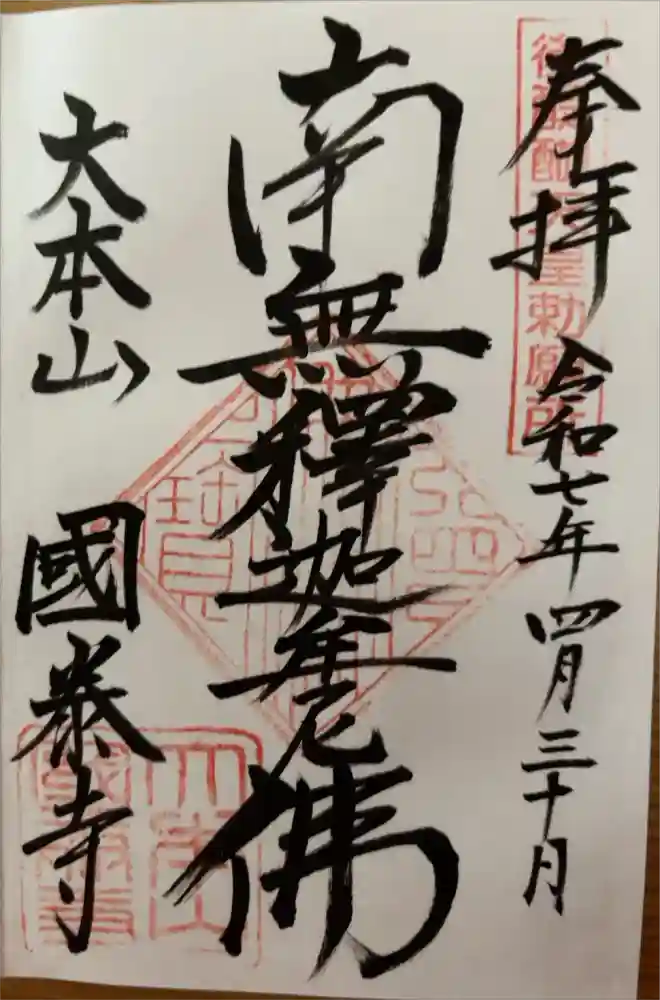 後醍醐天皇勅願所
奉拝 令和七年四月三十日
南無釋迦牟尼佛
大本山 國泰寺
大本山
國泰寺